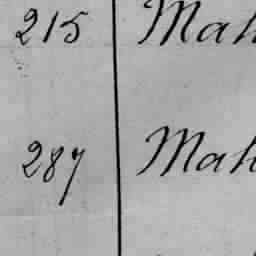 215 Mah
287 Mah